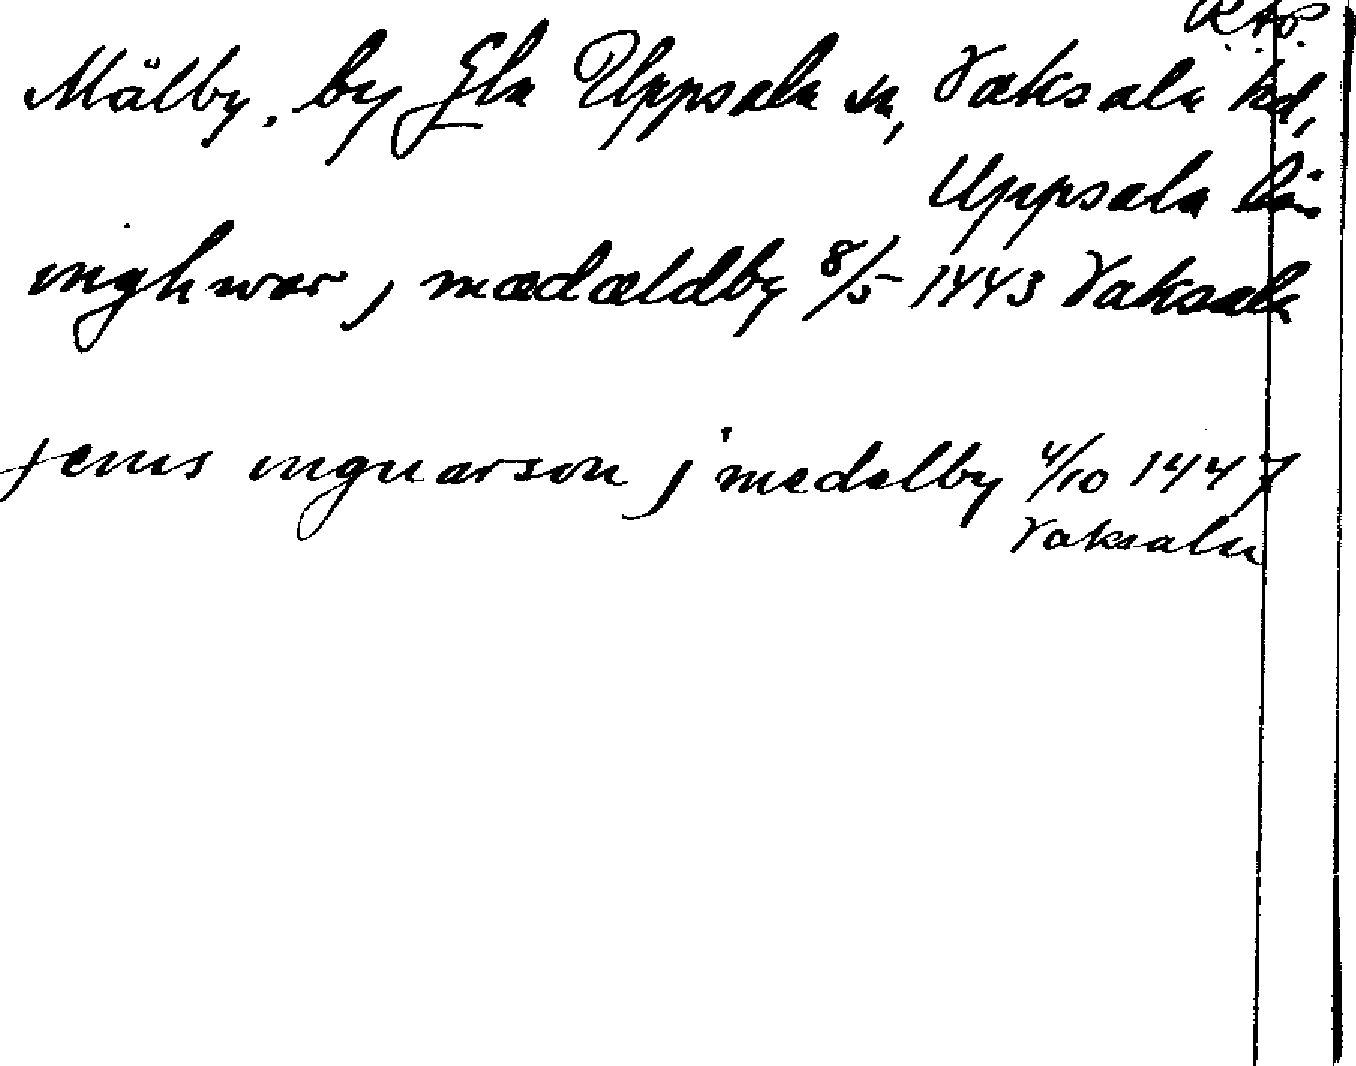 RAP.
Mälby, by Gla Uppsala sn, Vaksala hd,
Uppsala län
inghwar j mædældby 8/5 1443 Vaksala
jenis inguarson j medelby 4/10 1447
Vaksala